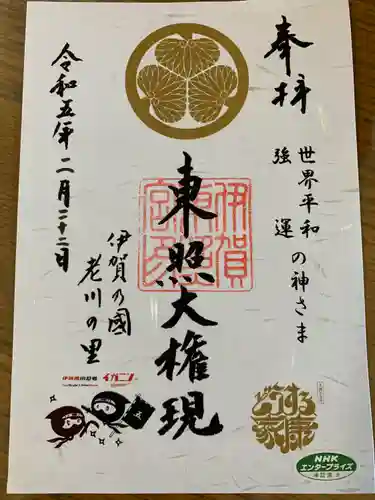 奉拝
世界平和
強運
の神さま
東照大権現
伊賀の國
老川の里
令和五年二月二十二日
イガニン
どうする家康
NHK
エンタープライズ